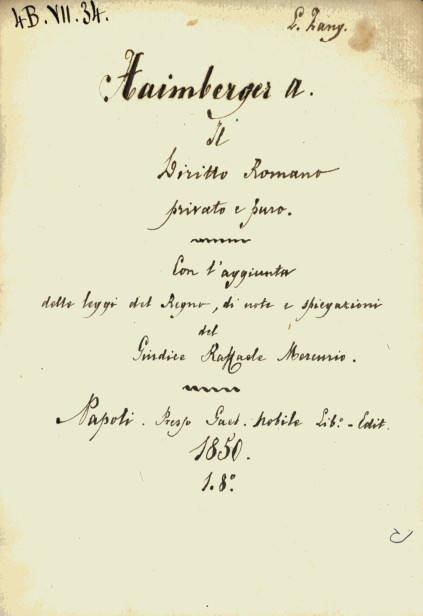 4B.VII.34.
Haimberger A.
Il
Diritto Romano
privato e puro.
Con l'aggiunta
delle leggi del Regno, di note e spiegazioni
del
Giudice Raffaele Mercurio.
Napoli. Presso Gaet. Nobile Lib.° - Edit.
1850.
1.8°.